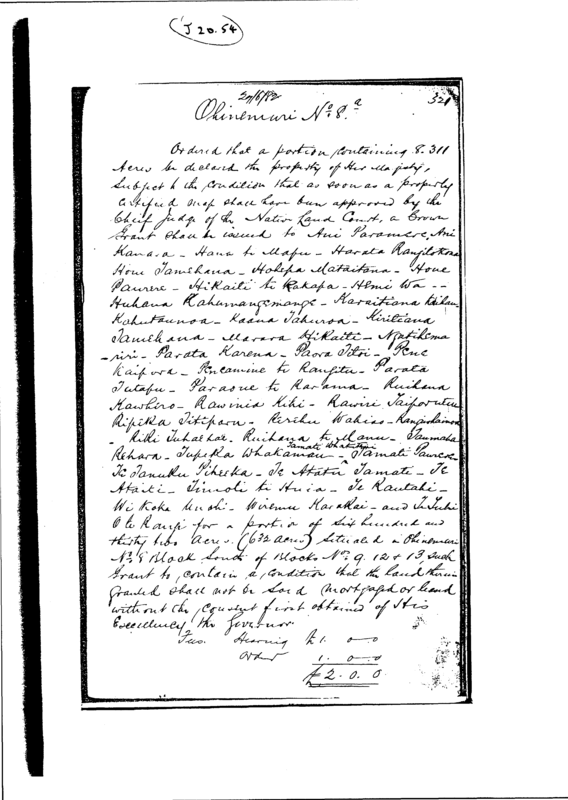 J 20.54
321
27/6/82
Ohinemuri No. 8.a
Ordered that a portion containing 8.311
Acres be declared the property of Her Majesty,
Subject to the condition that as soon as a properly
certified map shall have been approved by the
Chief Judge of the Native Land Court, a Crown
Grant shall be issued to Ani Paramere, Ani
Kanara - Hana te Mapu - Harata
Hone Tamehana - Hohepa Mataitana - Hone
Pawere - Hikaiti te Kakapa - Hemi Wa - -
Huhana Rahumangemange - Karaitiana
- Kaana - Kiritiana
Tamehana - Marara Hikaiti - Ngatihema
- Parata Karena - Paora Titoi - Pene
Kaipora - Pencamine te Rangitu - Parata
Tutapu - Paraone te Rarama - Ruihana
Kawhero - Rawinia Kiki - Rawiri Taiporutu
Ripeka Titiparu - Reribu Wahiao -
- Riki - Ruihana te Manu -
Rehara - Tupeka Whakamau - Tamati Pawere
Te Tanuku - Te Atatu Tamate - Te
Ataiti - Timoti te Huia - Te Rautahi -
Wi Koka - Wiremu Karakai - and
for a portion of Six hundred and
thirty two acres. (632 acres) situated in Ohinemuri
No. 8 Block South of Blocks No. 9. 12 & 13 such
Grant to contain a condition that the land therein
granted shall not be sold mortgaged or leased
without the consent first obtained of His
Excellency the Governor
Fees. Hearing £1. 0-0
Order 1. 0-0
£2. 0. 0